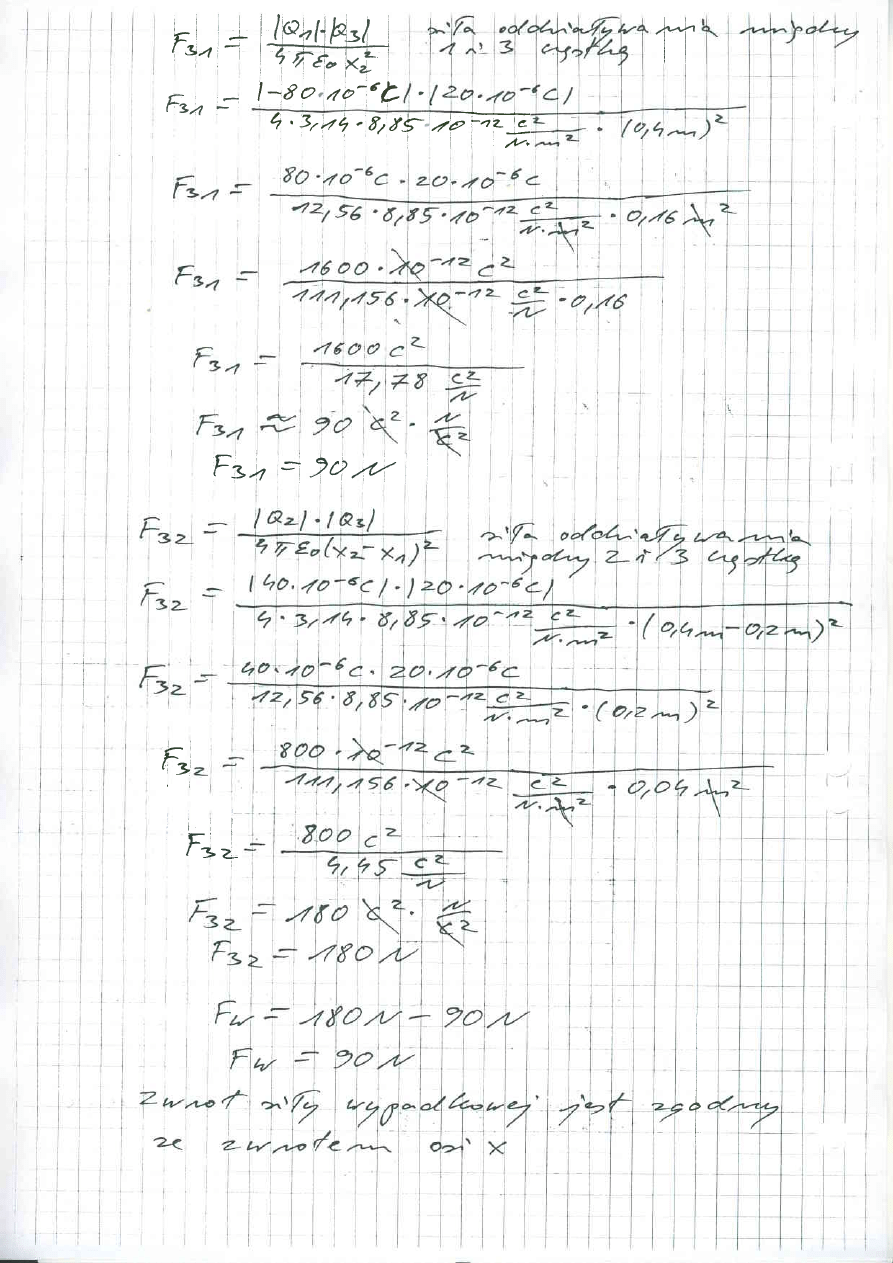 F₃₁ = |Q₁|·|Q₃| / 4πε₀x₂² siła oddziaływania między 1 i 3 cząstką
F₃₁ = |-80·10⁻⁶C|·|20·10⁻⁶C| / 4·3,14·8,85·10⁻¹² C²/N·m² · (0,4m)²
F₃₁ = 80·10⁻⁶C · 20·10⁻⁶C / 12,56·8,85·10⁻¹² C²/N·m² · 0,16 m²
F₃₁ = 1600·10⁻¹² C² / 111,156·10⁻¹² C²/N · 0,16
F₃₁ = 1600 C² / 17,78 C²/N
F₃₁ ≈ 90 C² · N/C²
F₃₁ = 90 N
F₃₂ = |Q₂|·|Q₃| / 4πε₀(x₂-x₁)² siła oddziaływania między 2 i 3 cząstką
F₃₂ = |40·10⁻⁶C|·|20·10⁻⁶C| / 4·3,14·8,85·10⁻¹² C²/N·m² · (0,4m-0,2m)²
F₃₂ = 40·10⁻⁶C · 20·10⁻⁶C / 12,56·8,85·10⁻¹² C²/N·m² · (0,2m)²
F₃₂ = 800·10⁻¹² C² / 111,156·10⁻¹² C²/N·m² · 0,04 m²
F₃₂ = 800 C² / 4,45 C²/N
F₃₂ = 180 C² · N/C²
F₃₂ = 180 N
Fw = 180 N - 90 N
Fw = 90 N
Zwrot siły wypadkowej jest zgodny
ze zwrotem osi x